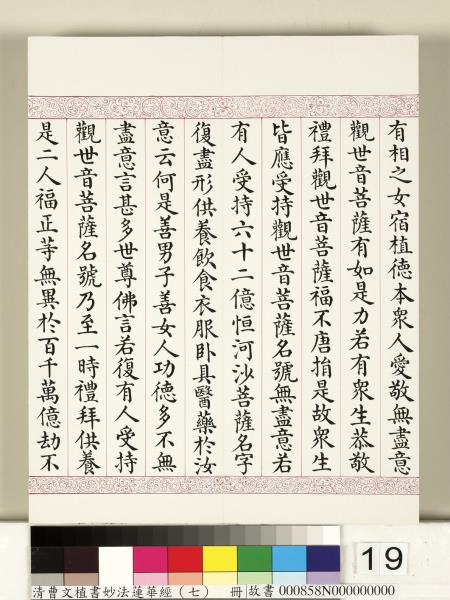 有相之女宿植德本衆人愛敬無盡意
觀世音菩薩有如是力若有衆生恭敬
禮拜觀世音菩薩福不唐捐是故衆生
皆應受持觀世音菩薩名號無盡意若
有人受持六十二億恒河沙菩薩名字
復盡形供養飲食衣服卧具醫藥於汝
意云何是善男子善女人功德多不無
盡意言甚多世尊佛言若復有人受持
觀世音菩薩名號乃至一時禮拜供養
是二人福正等無異於百千萬億劫不
19
清曹文植書妙法蓮華經（七） 冊 故書 000858N000000000